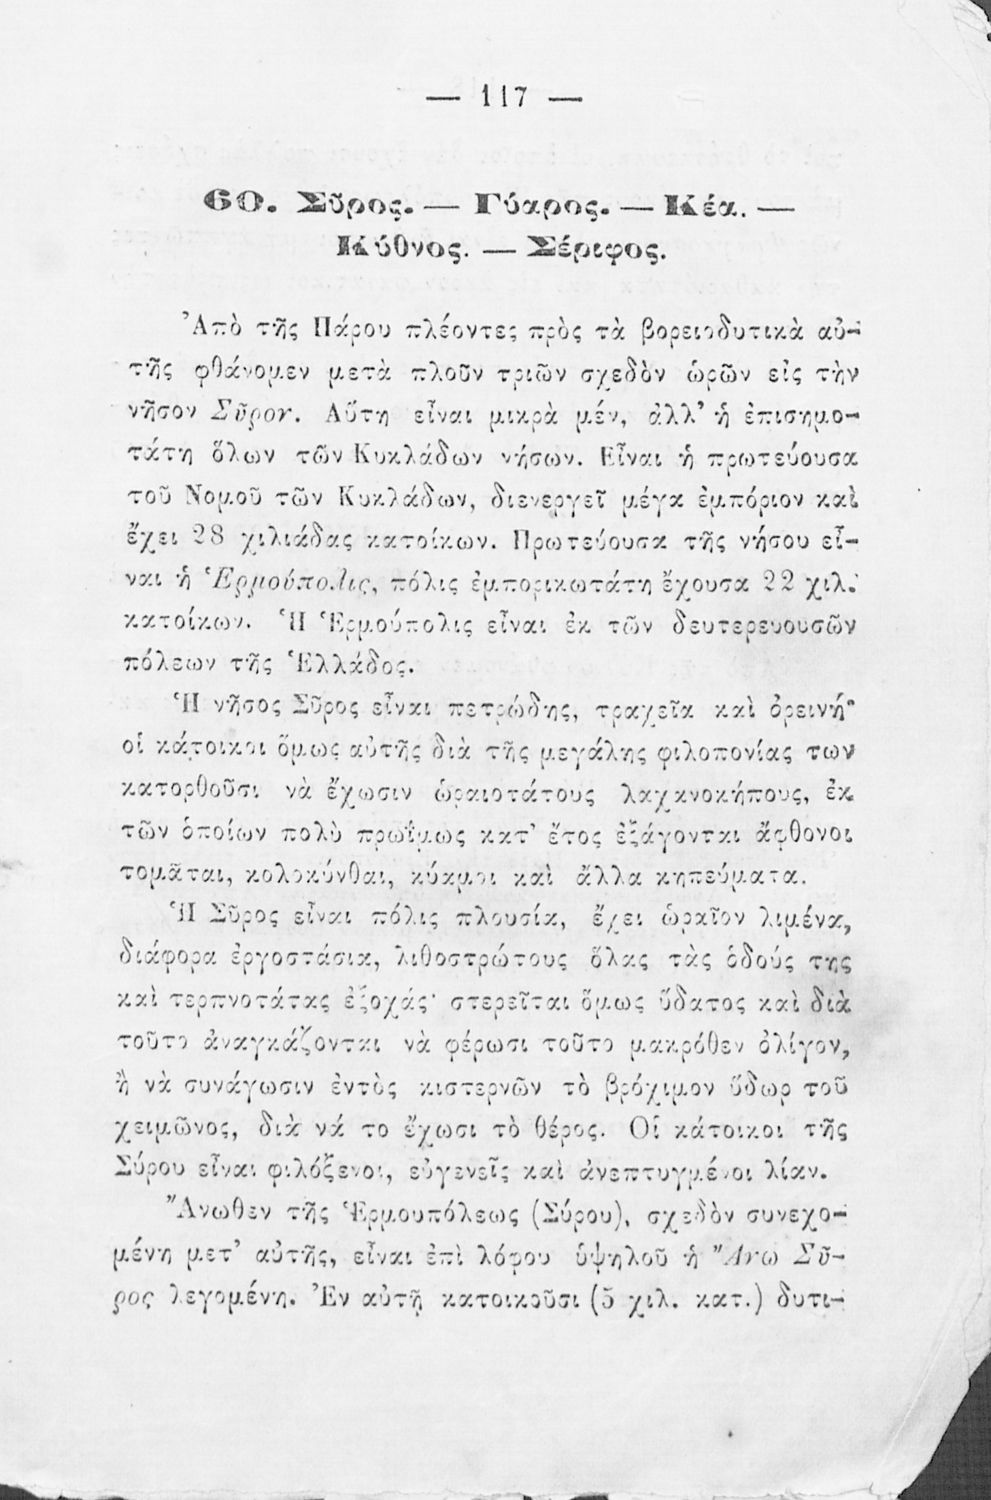 — 117 —
60. Σῦρος. — Γύαρος. — Κέα. —
Κύθνος. — Σέριφος.
Ἀπὸ τῆς Πάρου πλέοντες πρὸς τὰ βορειοδυτικὰ αὐ-
τῆς φθάνομεν μετὰ πλοῦν τριῶν σχεδὸν ὡρῶν εἰς τὴν
νῆσον Σῦρον. Αὕτη εἶναι μικρὰ μέν, ἀλλ’ ἡ ἐπισημο-
τάτη ὅλων τῶν Κυκλάδων νήσων. Εἶναι ἡ πρωτεύουσα
τοῦ Νομοῦ τῶν Κυκλάδων, διενεργεῖ μέγα ἐμπόριον καὶ
ἔχει 28 χιλιάδας κατοίκων. Πρωτεύουσα τῆς νήσου εἶ-
ναι ἡ Ἑρμούπολις, πόλις ἐμπορικωτάτη ἔχουσα 22 χιλ.
κατοίκων. Ἡ Ἑρμούπολις εἶναι ἐκ τῶν δευτερευουσῶν
πόλεων τῆς Ἑλλάδος.
Ἡ νῆσος Σῦρος εἶναι πετρώδης, τραχεῖα καὶ ὀρεινή·
οἱ κάτοικοι ὅμως αὐτῆς διὰ τῆς μεγάλης φιλοπονίας των
κατορθοῦσι νὰ ἔχωσιν ὡραιοτάτους λαχανοκήπους, ἐκ
τῶν ὁποίων πολὺ πρωΐμως κατ’ ἔτος ἐξάγονται ἄφθονοι
τομᾶται, κολοκύνθαι, κύαμοι καὶ ἄλλα κηπεύματα.
Ἡ Σῦρος εἶναι πόλις πλουσία, ἔχει ὡραῖον λιμένα,
διάφορα ἐργοστάσια, λιθοστρώτους ὅλας τὰς ὁδούς της
καὶ τερπνοτάτας ἐξοχάς· στερεῖται ὅμως ὕδατος καὶ διὰ
τοῦτο ἀναγκάζονται νὰ φέρωσι τοῦτο μακρόθεν ὀλίγον,
ἢ νὰ συνάγωσιν ἐντὸς κιστερνῶν τὸ βρόχιμον ὕδωρ τοῦ
χειμῶνος, διὰ νά το ἔχωσι τὸ θέρος. Οἱ κάτοικοι τῆς
Σύρου εἶναι φιλόξενοι, εὐγενεῖς καὶ ἀνεπτυγμένοι λίαν.
Ἄνωθεν τῆς Ἑρμουπόλεως (Σύρου), σχεδὸν συνεχο-
μένη μετ’ αὐτῆς, εἶναι ἐπὶ λόφου ὑψηλοῦ ἡ Ἄνω Σῦ-
ρος λεγομένη. Ἐν αὐτῇ κατοικοῦσι (5 χιλ. κατ.) δυτι-